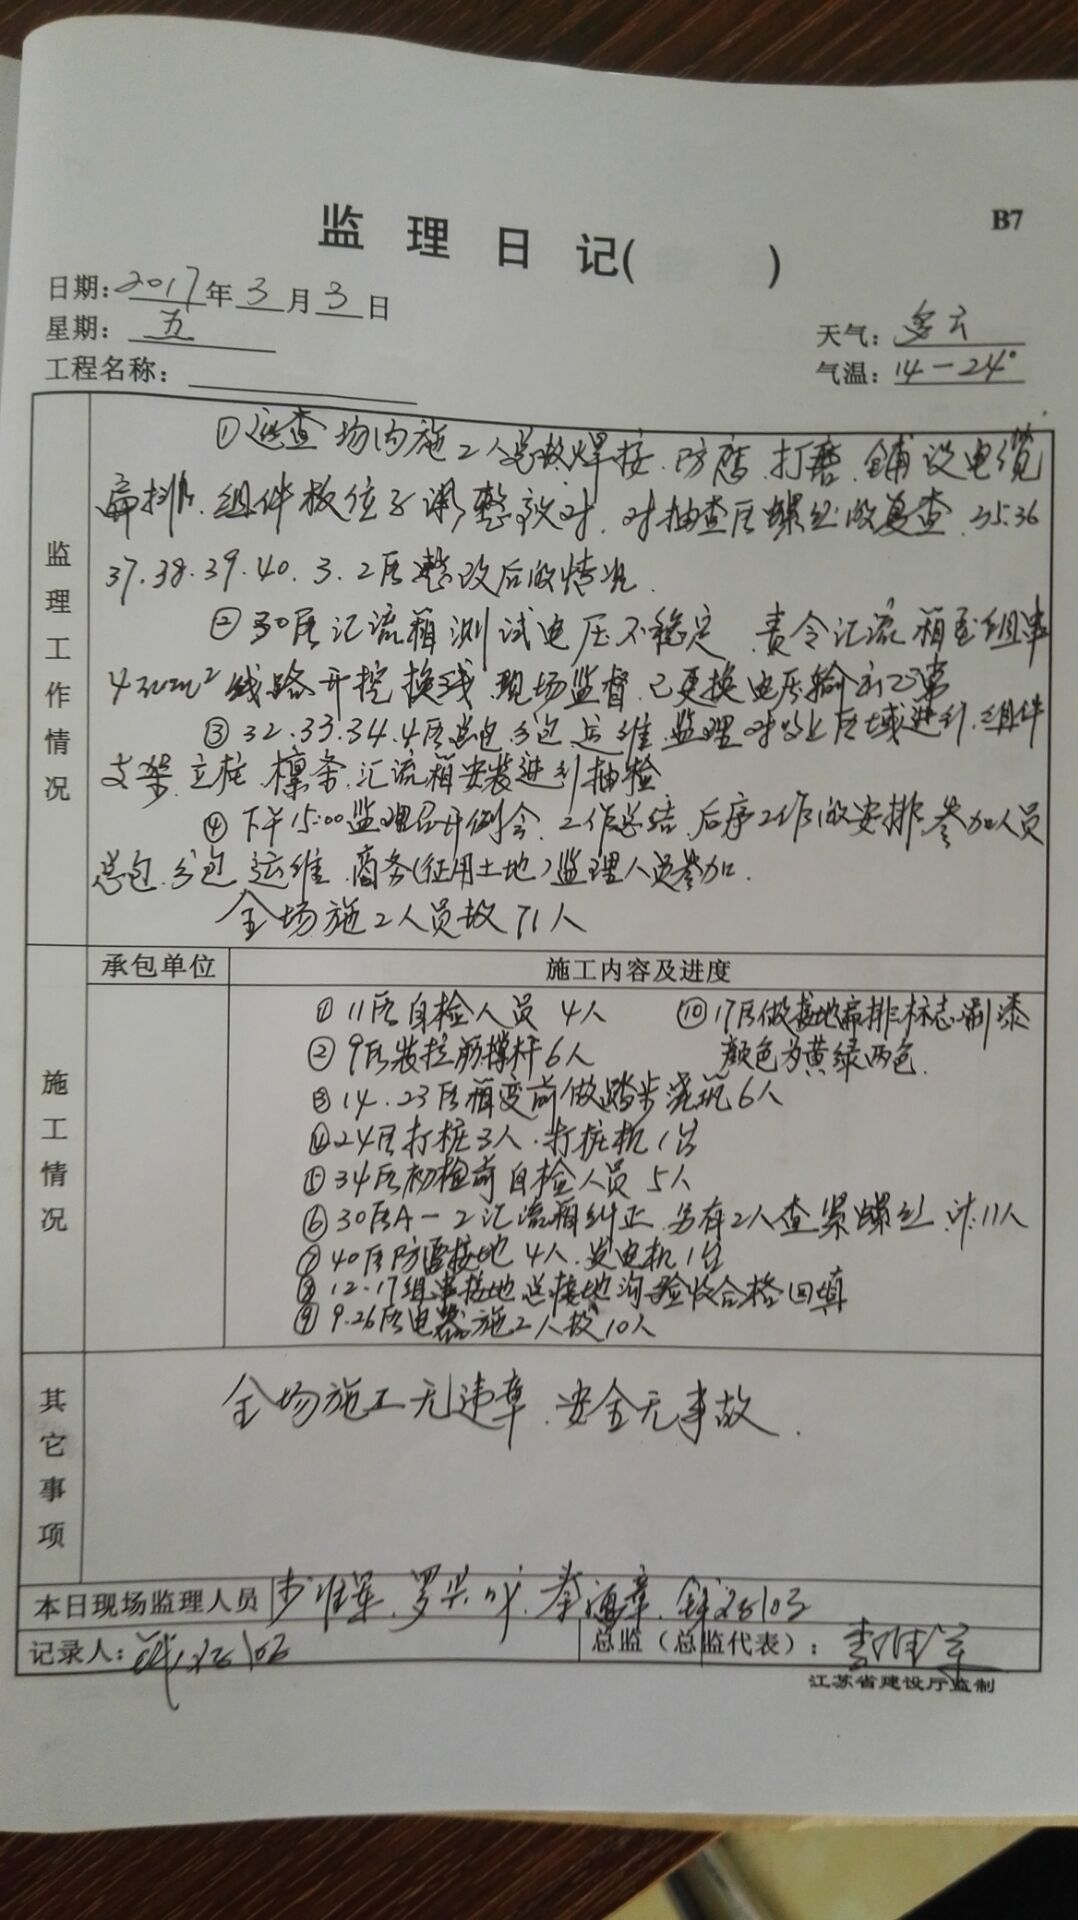 B7
监理日记( )
日期:2017年3月3日
星期:五
天气:多云
工程名称:
气温:14-24°
监理工作情况
①巡查场内施工人员做焊接.防腐.打磨.铺设电缆
扁排.组件板位子调整 对.对抽查区螺丝做复查.35.36
37.38.39.40.3.2区整改后的情况.
②30区汇流箱测试电压不稳定 责令汇流箱至组串
4mm² 线路开挖换线.现场监督.已更换电压输出正常
③32.33.34.4区总包.分包.运维.监理对以上区域进行.组件
支架.立柱.檩条.汇流箱安装进行抽检
④下午15:00监理召开例会.工作总结.后序工作的安排.参加人员
总包.分包.运维.商务(征用土地)监理人员参加.
全场施工人员数71人
承包单位 施工内容及进度
施工情况
①11区自检人员 4人
②9区装拉筋撑杆6人
③14.23区箱变前做踏步浇筑6人
④24区打桩3人.打桩机1台
⑤34区初检前自检人员5人
⑥30区A-2汇流箱纠正.另有2人查紧螺丝.计:11人
⑦40区防雷接地4人.发电机1台
⑧12.17组串接地 接地沟验收合格回填
⑨9.26区电器施工人数10人
⑩17区做接地扁排标志涮漆
颜色为黄绿两色.
其它事项
全场施工无违章.安全无事故.
本日现场监理人员
记录人:
总监（总监代表）:
江苏省建设厅监制